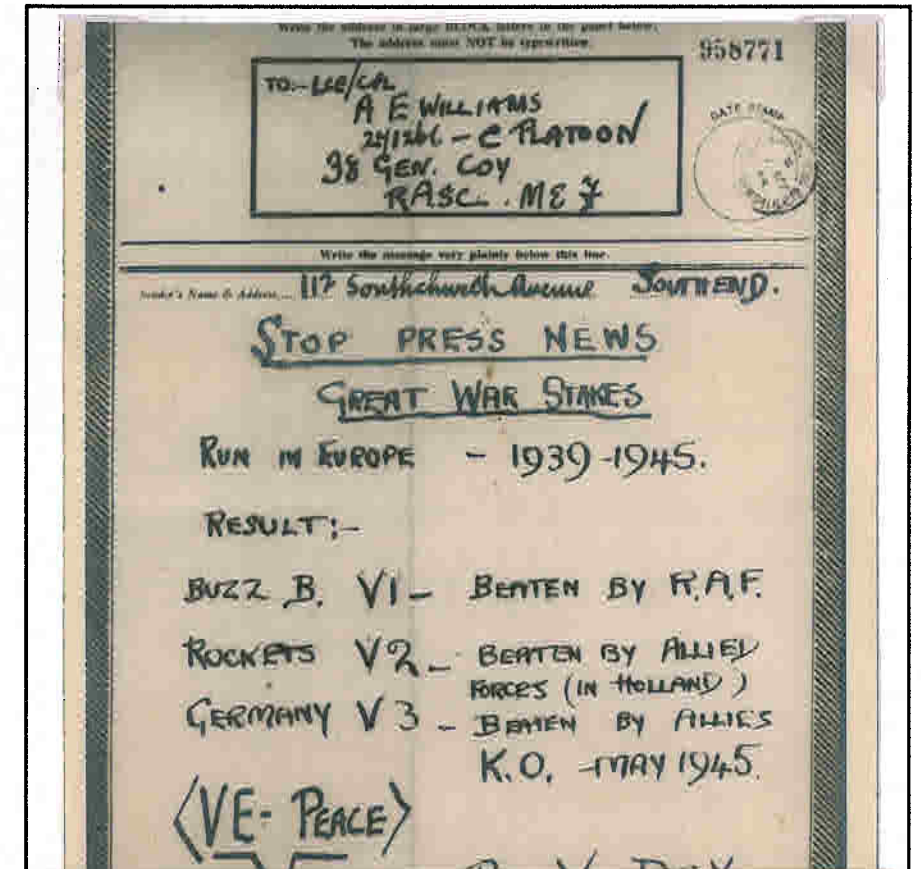 Write the address in large BLOCK letters in the panel below.
The address must NOT be typewritten.
958771
TO:- LCE/CPL
A E WILLIAMS
- C PLATOON
98 GEN. COY
RASC. MEF
DATE STAMP
Write the message very plainly below this line.
Sender's Name & Address.... 112 Southchurch Avenue SOUTHEND.
STOP PRESS NEWS
GREAT WAR STAKES
RUN IN EUROPE - 1939-1945.
RESULT:-
BUZZ B. V1- BEATEN BY R.A.F.
ROCKETS V2- BEATEN BY ALLIED
FORCES (IN HOLLAND)
GERMANY V3- BEATEN BY ALLIES
K.O. -MAY 1945.
<VE- PEACE>